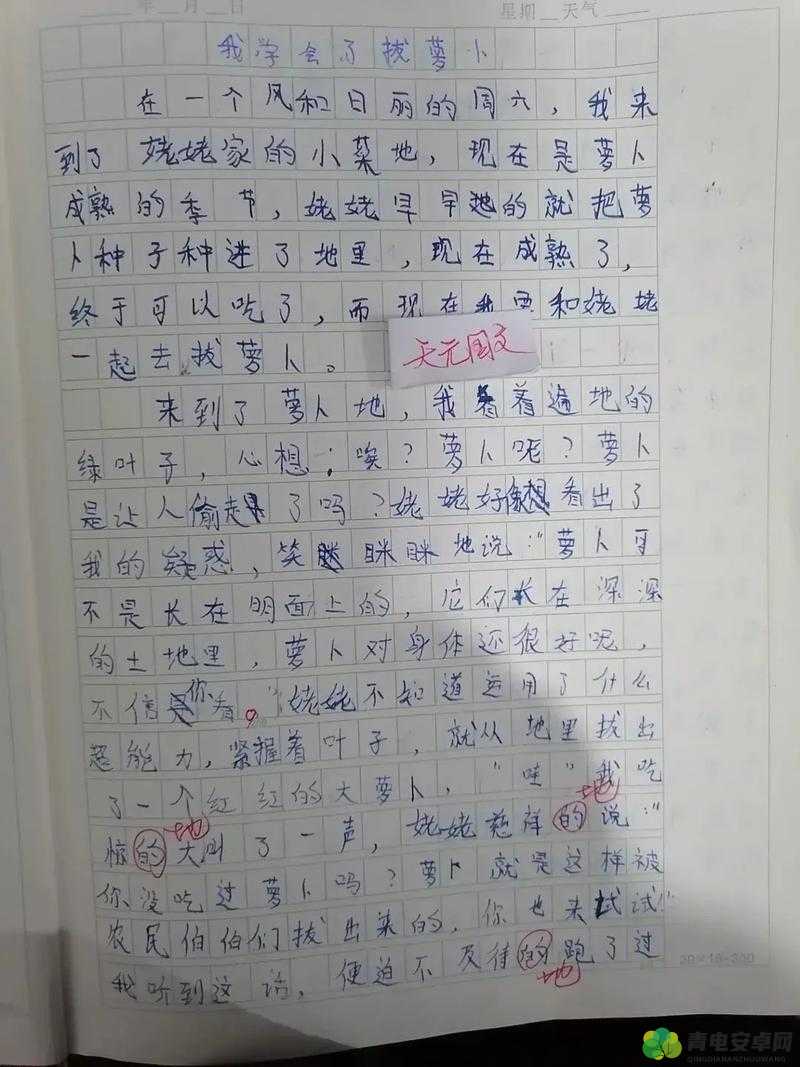 年 月 日 星期 天气
我学会了拔萝卜
在一个风和日丽的周六，我来
到了姥姥家的小菜地，现在是萝卜
成熟的季节，姥姥早早地的就把萝
卜种子种进了地里，现在成熟了，
终于可以吃了，而现在我要和姥姥
一起去拔萝卜。
天元图文
来到了萝卜地，我看着遍地的
绿叶子，心想：唉？萝卜呢？萝卜
是让人偷走了吗？姥姥好像看出了
我的疑惑，笑眯眯地说：“萝卜可
不是长在明面上的，它们长在深深
的土地里，萝卜对身体还很好呢，
不信你看。”姥姥不知道运用了什么
超能力，紧握着叶子，就从地里拔出
了一个红红的大萝卜，“哇”我吃
惊的大叫了一声，姥姥慈祥的说：“
地 地
你没吃过萝卜吗？萝卜就是这样被
农民伯伯们拔出来的，你也来试试！”
我听到这话，便迫不及待的跑了过
地
20×15=300
青电安卓网
QINGDIANANZHUOWANG